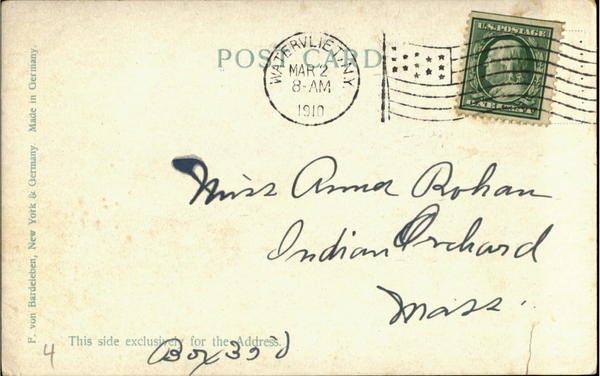 POST CARD
WATERVLIET, N.Y.
MAR 2
8-AM
1910
U.S. POSTAGE
ONE CENT
Miss Anna Rohan
Indian Orchard
Mass.
This side exclusively for the Address.
4
F. von Bardeleben, New York & Germany. Made in Germany.